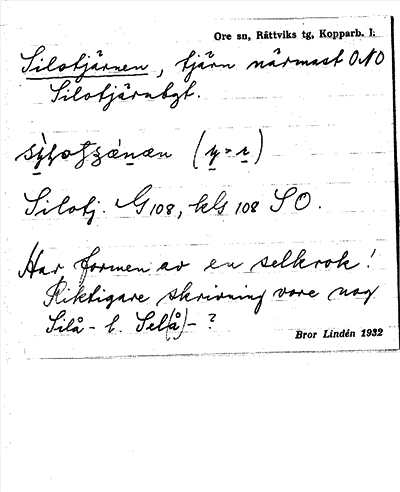 Ore sn, Rättviks tg, Kopparb. l:
Silotjärnen, tjärn närmast ONO
Silotjärnbgt.
(y = )
Silotj. G108, kls 108 SO.
Har formen av en selkrok!
Riktigare skrivning vore nog
Silå- l. Sel(å)- ?
Bror Lindén 1932